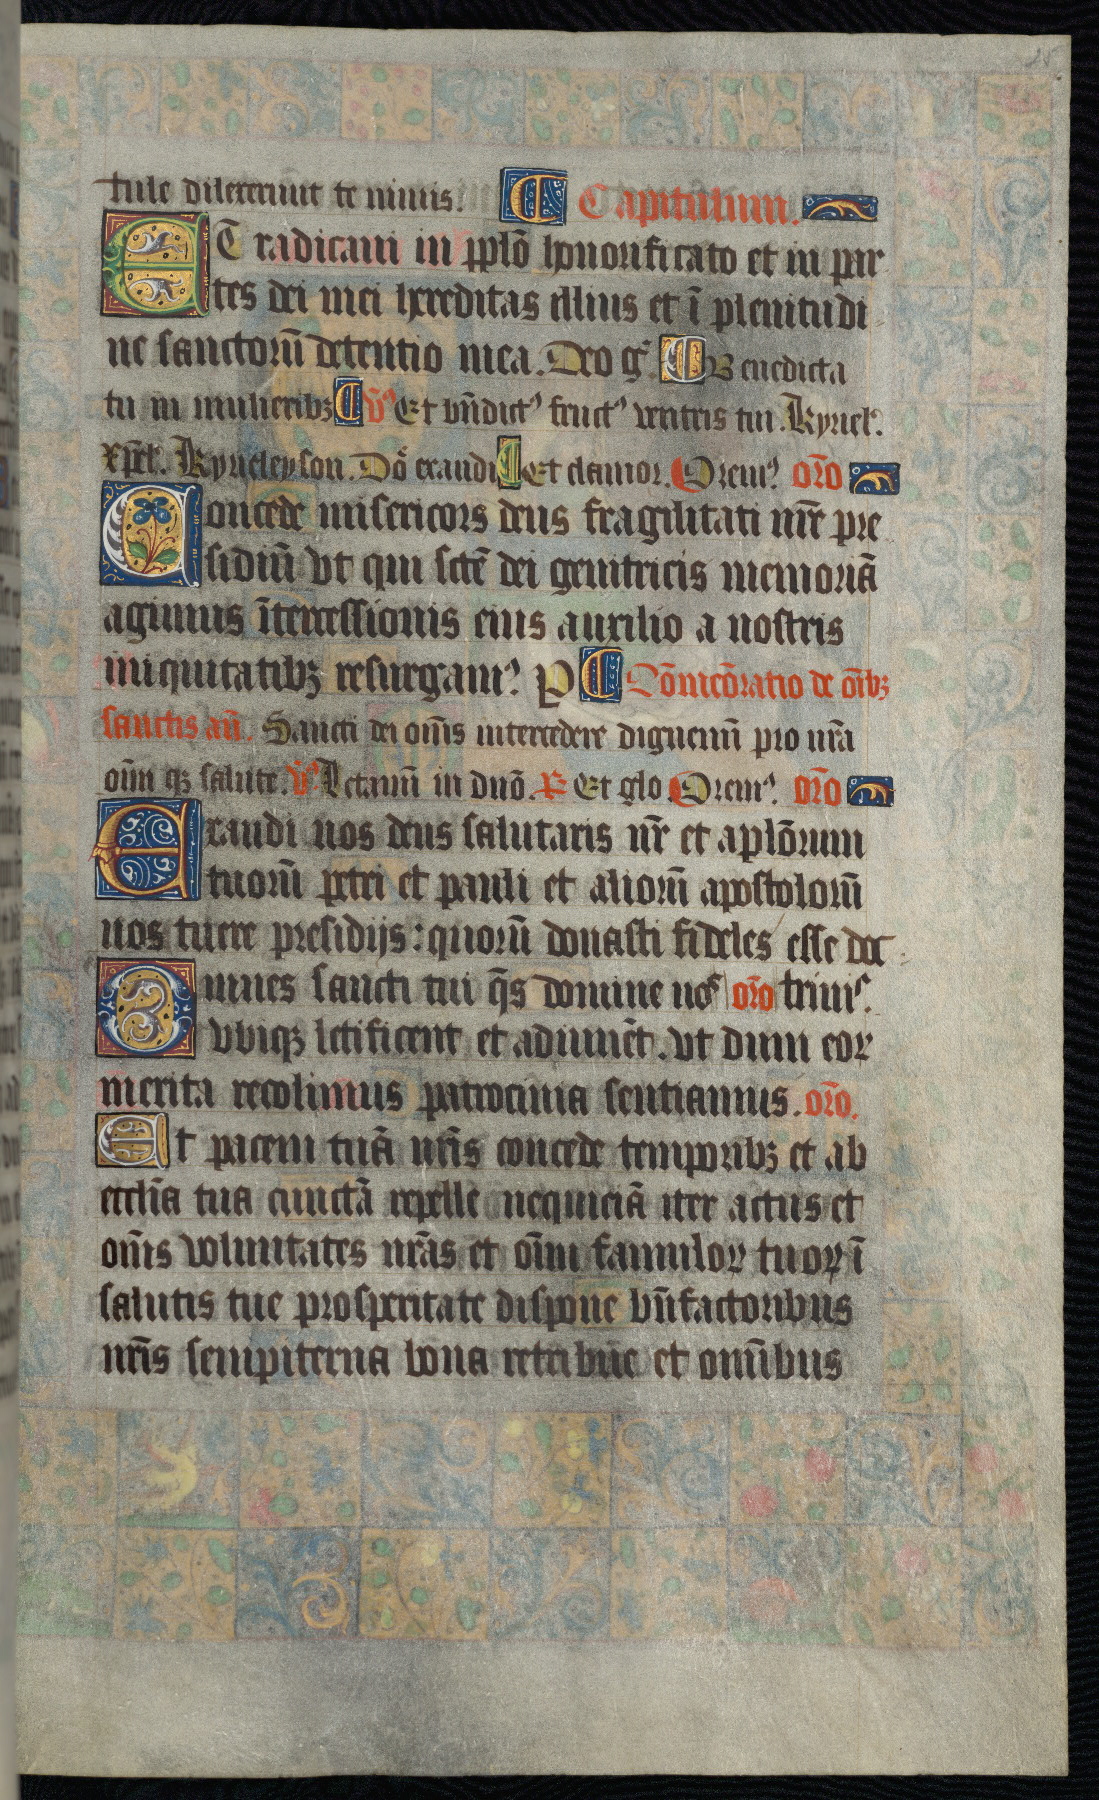 tule dilexerunt te nimis. Capitulum.
ET radicaui in pplō honorificato et in par
tes dei mei hereditas illius et ī plenitudi
ne sanctorū detentio mea. Deo gͬ. Benedicta
tu in mulieribꝫ ℣ Et bn̄dictꝰ fructꝰ ventris tui. Kyriel'.
xp̄el'. Kyrieleyson. Dō exaudi Et clamor. Oremꝰ oro
Concede misericors deus fragilitati nr̄e pre
sidiū vt qui scte̅ dei genitricis memoriā
agimus ītercessionis eius auxilio a nostris
iniquitatibꝫ resurgamꝰ P Cōmēoratio de oībꝫ
sanctis añ. Sancti dei om̄s intercedere dignemi̅ pro nr̄a
oīm qꝫ salute. ℣ Letami̅ in dno̅. ℟ Et glo Oremꝰ. oro
Exaudi nos deus salutaris nr̄ et aplōrum
tuorū petri et pauli et aliorū apostolorū
nos tuere presidijs: quorū donasti fideles esse doc
Omnes sancti tui q̄s domine nos oro trinis.
vbiqꝫ letificent et adiuuēt. vt dum eoꝝ
merita recolimus patrocinia sentiamus. oro.
Et pacem tuā nr̄is concede temporibꝫ et ab
eccl̄ia tua cunctā repelle nequiciā iter actus et
om̄s voluntates nr̄as et oīm famuloꝝ tuoꝝ ī
salutis tue prosperitate dispone bn̄factoribus
nr̄is sempiterna bona retribue et omībus